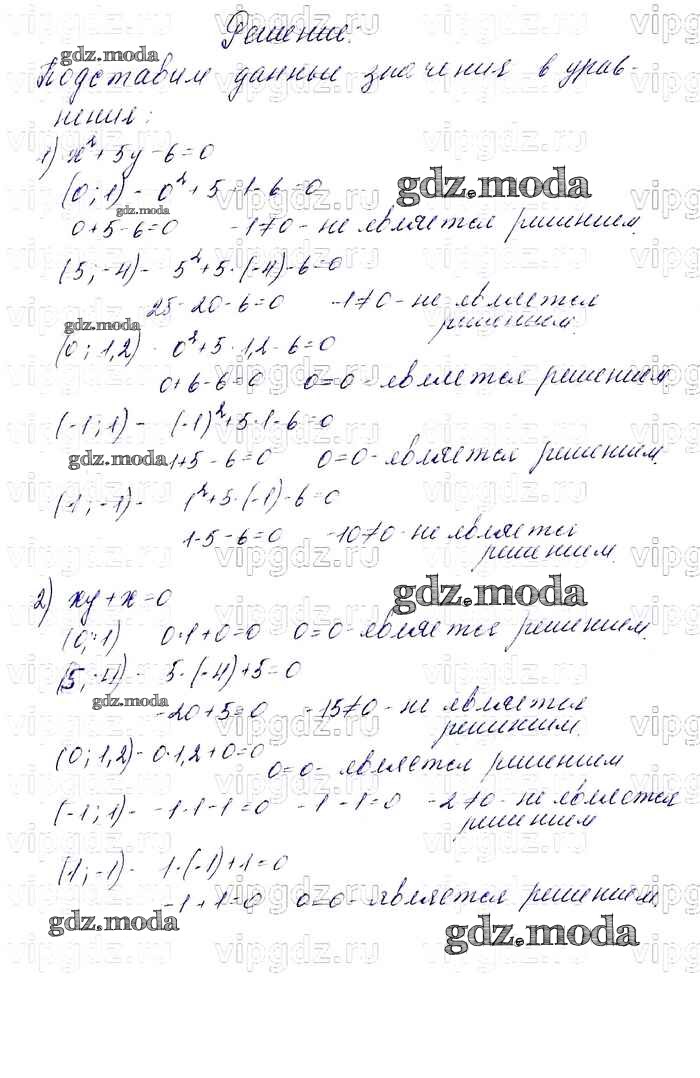 Решение:
Подставим данные значения в урав-
нения:
1) x²+5y-6=0
(0;1) - 0²+5·1-6=0
0+5-6=0 -1≠0 - не является решением.
(5;-4) - 5²+5·(-4)-6=0
25-20-6=0 -1≠0 - не является
решением.
(0;1,2) - 0²+5·1,2-6=0
0+6-6=0 0=0 - является решением.
(-1;1) - (-1)²+5·1-6=0
1+5-6=0 0=0 - является решением.
(1;-1) - 1²+5·(-1)-6=0
1-5-6=0 -10≠0 - не является
решением.
2) xy+x=0
(0;1) 0·1+0=0 0=0 - является решением.
(5;-4) - 5·(-4)+5=0
-20+5=0 -15≠0 - не является
решением.
(0;1,2) - 0·1,2+0=0
0=0 - является решением
(-1;1) - -1·1-1=0 -1-1=0 -2≠0 - не является
решением
(1;-1) - 1·(-1)+1=0
-1+1=0 0=0 - является решением.
gdz.moda
vipgdz.ru